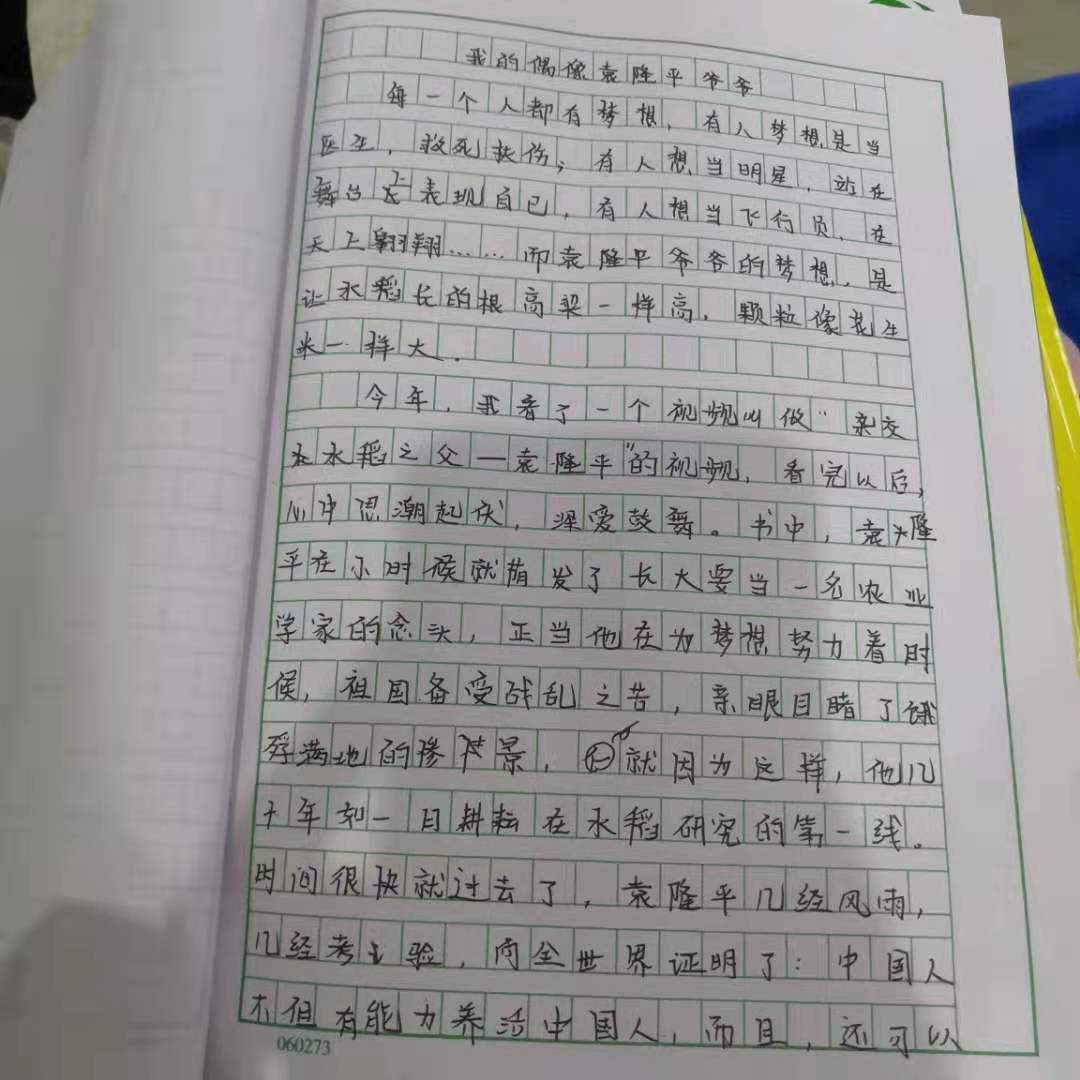 我的偶像袁隆平爷爷
每一个人都有梦想，有人梦想是当
医生，救死扶伤；有人想当明星，站在
舞台上表现自己，有人想当飞行员，在
天上翱翔……而袁隆平爷爷的梦想，是
让水稻长的根高梁一样高，颗粒像花生
米一样大．
今年，我看了一个视频叫做“杂交
水稻之父一袁隆平”的视频，看完以后，
心中思潮起伏，深爱鼓舞。书中，袁隆
平在小时候就萌发了长大要当一名农业
学家的念头，正当他在为梦想努力着时
候，祖国备受战乱之苦，亲眼目睹了饿
殍满地的惨景，就因为这样，他几
十年如一日耕耘在水稻研究的第一线。
时间很快就过去了，袁隆平几经风雨，
几经考验，向全世界证明了：中国人
不但有能力养活中国人，而且，还可以
060273